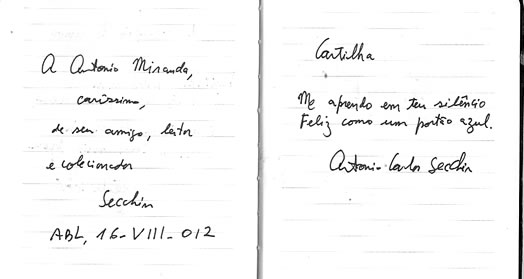 A Antonio Miranda,
caríssimo,
de seu amigo, leitor
e colecionador
Secchin
ABL, 16-VIII-012
Cartilha
Me aprendo em teu silêncio
Feliz como um portão azul.
Antonio Carlos Secchin